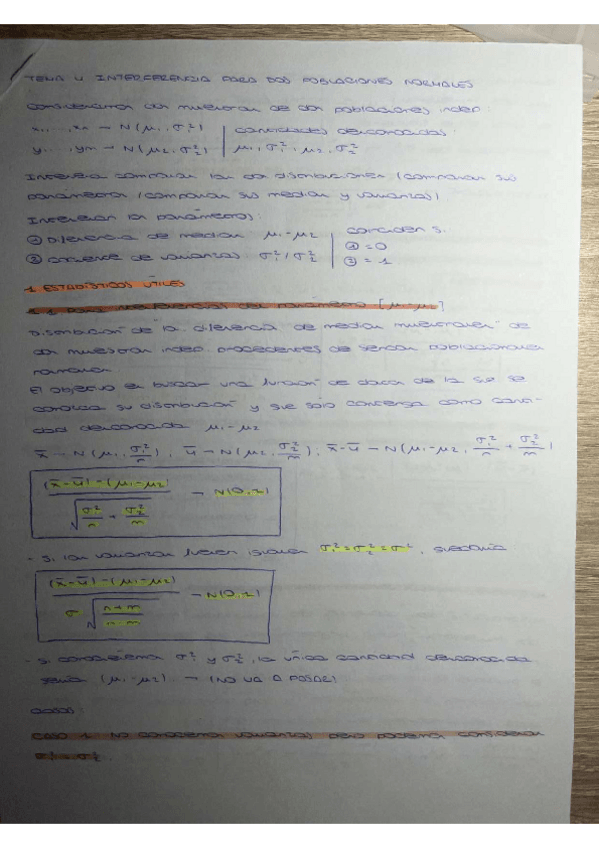 TEMA 4 INTERFERENCIA PARA DOS POBLACIONES NORMALES
consideramos dos muestras de dos poblaciones indep:
x₁, ..., xn → N(μ₁, σ₁²) | cantidades desconocidas
y₁, ..., ym → N(μ₂, σ₂²) | μ₁, σ₁², μ₂, σ₂²
Interesa comparar las dos distribuciones (comparar sus
parámetros (comparar sus medias y varianzas)
Interesan los parámetros: coinciden si
① Diferencia de medias μ₁-μ₂ | ① = 0
② cociente de varianzas σ₁²/σ₂² | ② = 1
1 ESTADÍSTICOS ÚTILES
1.1 Para inferencias del parámetro [μ₁-μ₂]
Distribución de la diferencia de medias muestrales de
dos muestras indep. procedentes de sendas poblaciones
normales
El objetivo es buscar una función de datos de la que se
conozca su distribución y que solo contenga como canti-
dad desconocida μ₁-μ₂
x̄ → N(μ₁, σ₁²/n), ȳ → N(μ₂, σ₂²/m); x̄-ȳ → N(μ₁-μ₂, σ₁²/n + σ₂²/m)
(x̄-ȳ)-(μ₁-μ₂) / √(σ₁²/n + σ₂²/m) → N(0,1)
- Si las varianzas fuesen iguales σ₁²=σ₂²=σ², quedaría
(x̄-ȳ)-(μ₁-μ₂) / σ √((n+m)/(n·m)) → N(0,1)
- Si conociésemos σ₁² y σ₂², la única cantidad desconocida
sería (μ₁-μ₂) → (NO VA A PASAR)
CASOS:
CASO 1: No conocemos varianzas pero podemos considerar
σ₁² = σ₂².